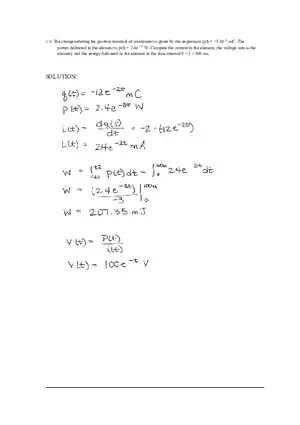 1.11 The charge entering the positive terminal of an element is given by the expression q(t) = −12e⁻²ᵗ mC. The
power delivered to the element is p(t) = 2.4e⁻³ᵗ W. Compute the current in the element, the voltage across the
element, and the energy delivered to the element in the time interval 0 < t < 100 ms.
SOLUTION:
q(t) = -12e⁻²ᵗ mC
p(t) = 2.4e⁻³ᵗ W
i(t) = dq(t)/dt = -2·(12e⁻²ᵗ)
i(t) = 24e⁻²ᵗ mA
W = ∫ₜ₁ᵗ² p(t)dt = ∫₀¹⁰⁰ᵐ 2.4e⁻³ᵗ dt
W = (2.4e⁻³ᵗ)/-3 |₀¹⁰⁰ᵐ
W = 207.35 mJ
V(t) = P(t)/i(t)
V(t) = 100e⁻ᵗ V